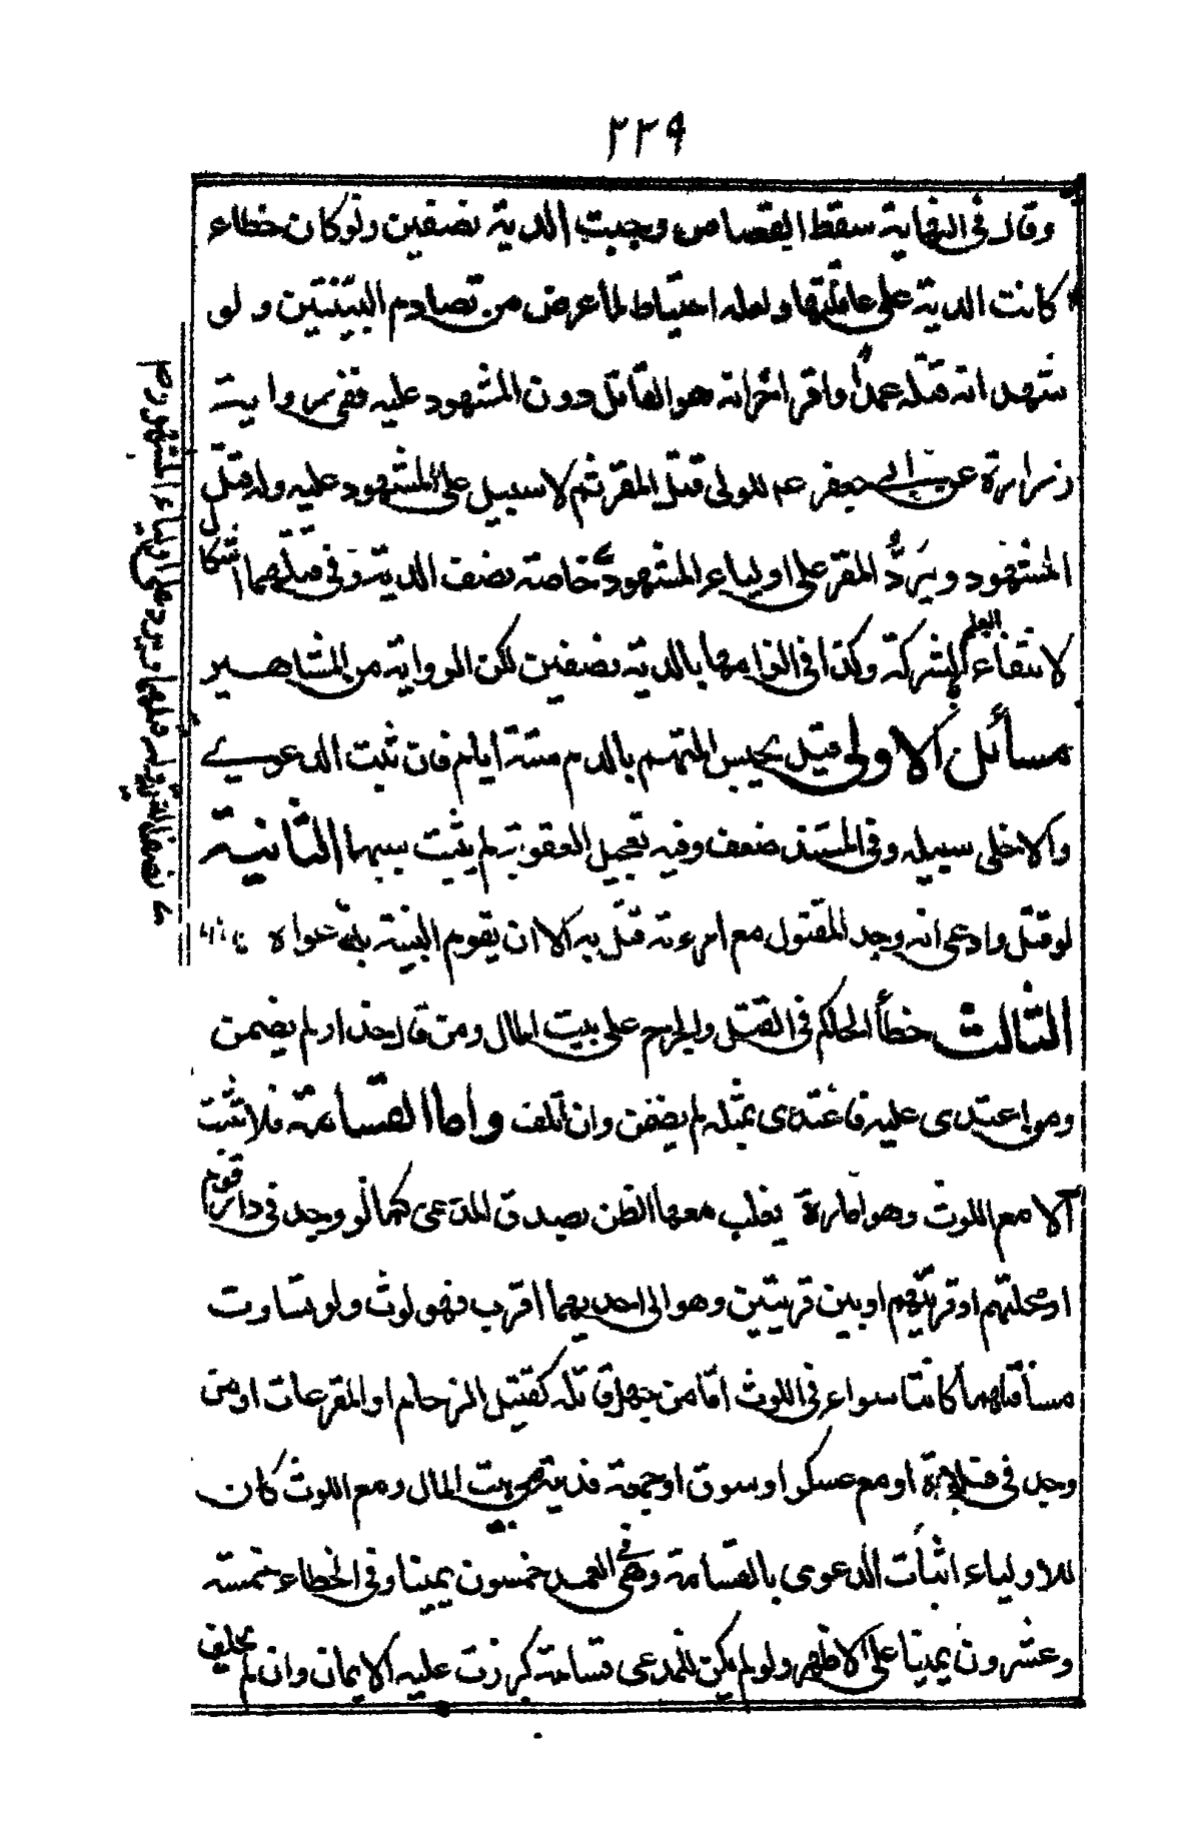 ٢٢٩
وقال في النهاية سقط القصاص ووجبت الدية نصفين ولو كان خطاء
كانت الدية على عاقلتهما ولعله احتياط لما عرض من تصادم البينتين ولو
شهد انه قتله عمدًا واقر اخر انه هو القاتل دون المشهود عليه ففي رواية
زرارة عن ابي جعفر عم للولي قتل المقر ثم لا سبيل على المشهود عليه وله قتل
المشهود ويَرُدُّ المقر على اولياء المشهود خاصة نصف الدية وفي قتلهما اشكال
لانتفاء العلم بالشركة وكذا في الزامهما بالدية نصفين لكن الرواية من المشاهير
مسائل الاولى قيل يحبس المتهم بالدم ستة ايام فان ثبت الدعوى
والا خلى سبيله وفي المستند ضعف وفيه تعجيل العقوبة لم يثبت سببها الثانية
لو قتل وادعى انه وجد المقتول مع امرءته قتل به الا ان يقوم البينة بدعواه
الثالث خطأ الحاكم في القتل والجرح على بيت المال ومن قال حذار لم يضمن
ومن اعتدى عليه فاعتدى بمثله لم يضمن وان تلف واما القسامة فلا تثبت
الا مع اللوث وهو امارة يغلب معها الظن بصدق المدعى كما لو وجد في دار قوم
او محلتهم او قريتهم او بين قريتين وهو الى احديهما اقرب فهو لوث ولو تساوت
مسافتهما كانتا سواء في اللوث امّا من جهل قاتله كقتيل الزحام او الفزعات او من
وجد في فلاة او مع عسكر او سوق او جمعة فديته من بيت المال ومع اللوث كان
للاولياء اثبات الدعوى بالقسامة وهي في العمد خمسون يمينا وفي الخطاء خمسة
وعشرون يمينا على الاظهر ولو لم يكن للمدعى قسامة كررت عليه الايمان وان لم يحلف